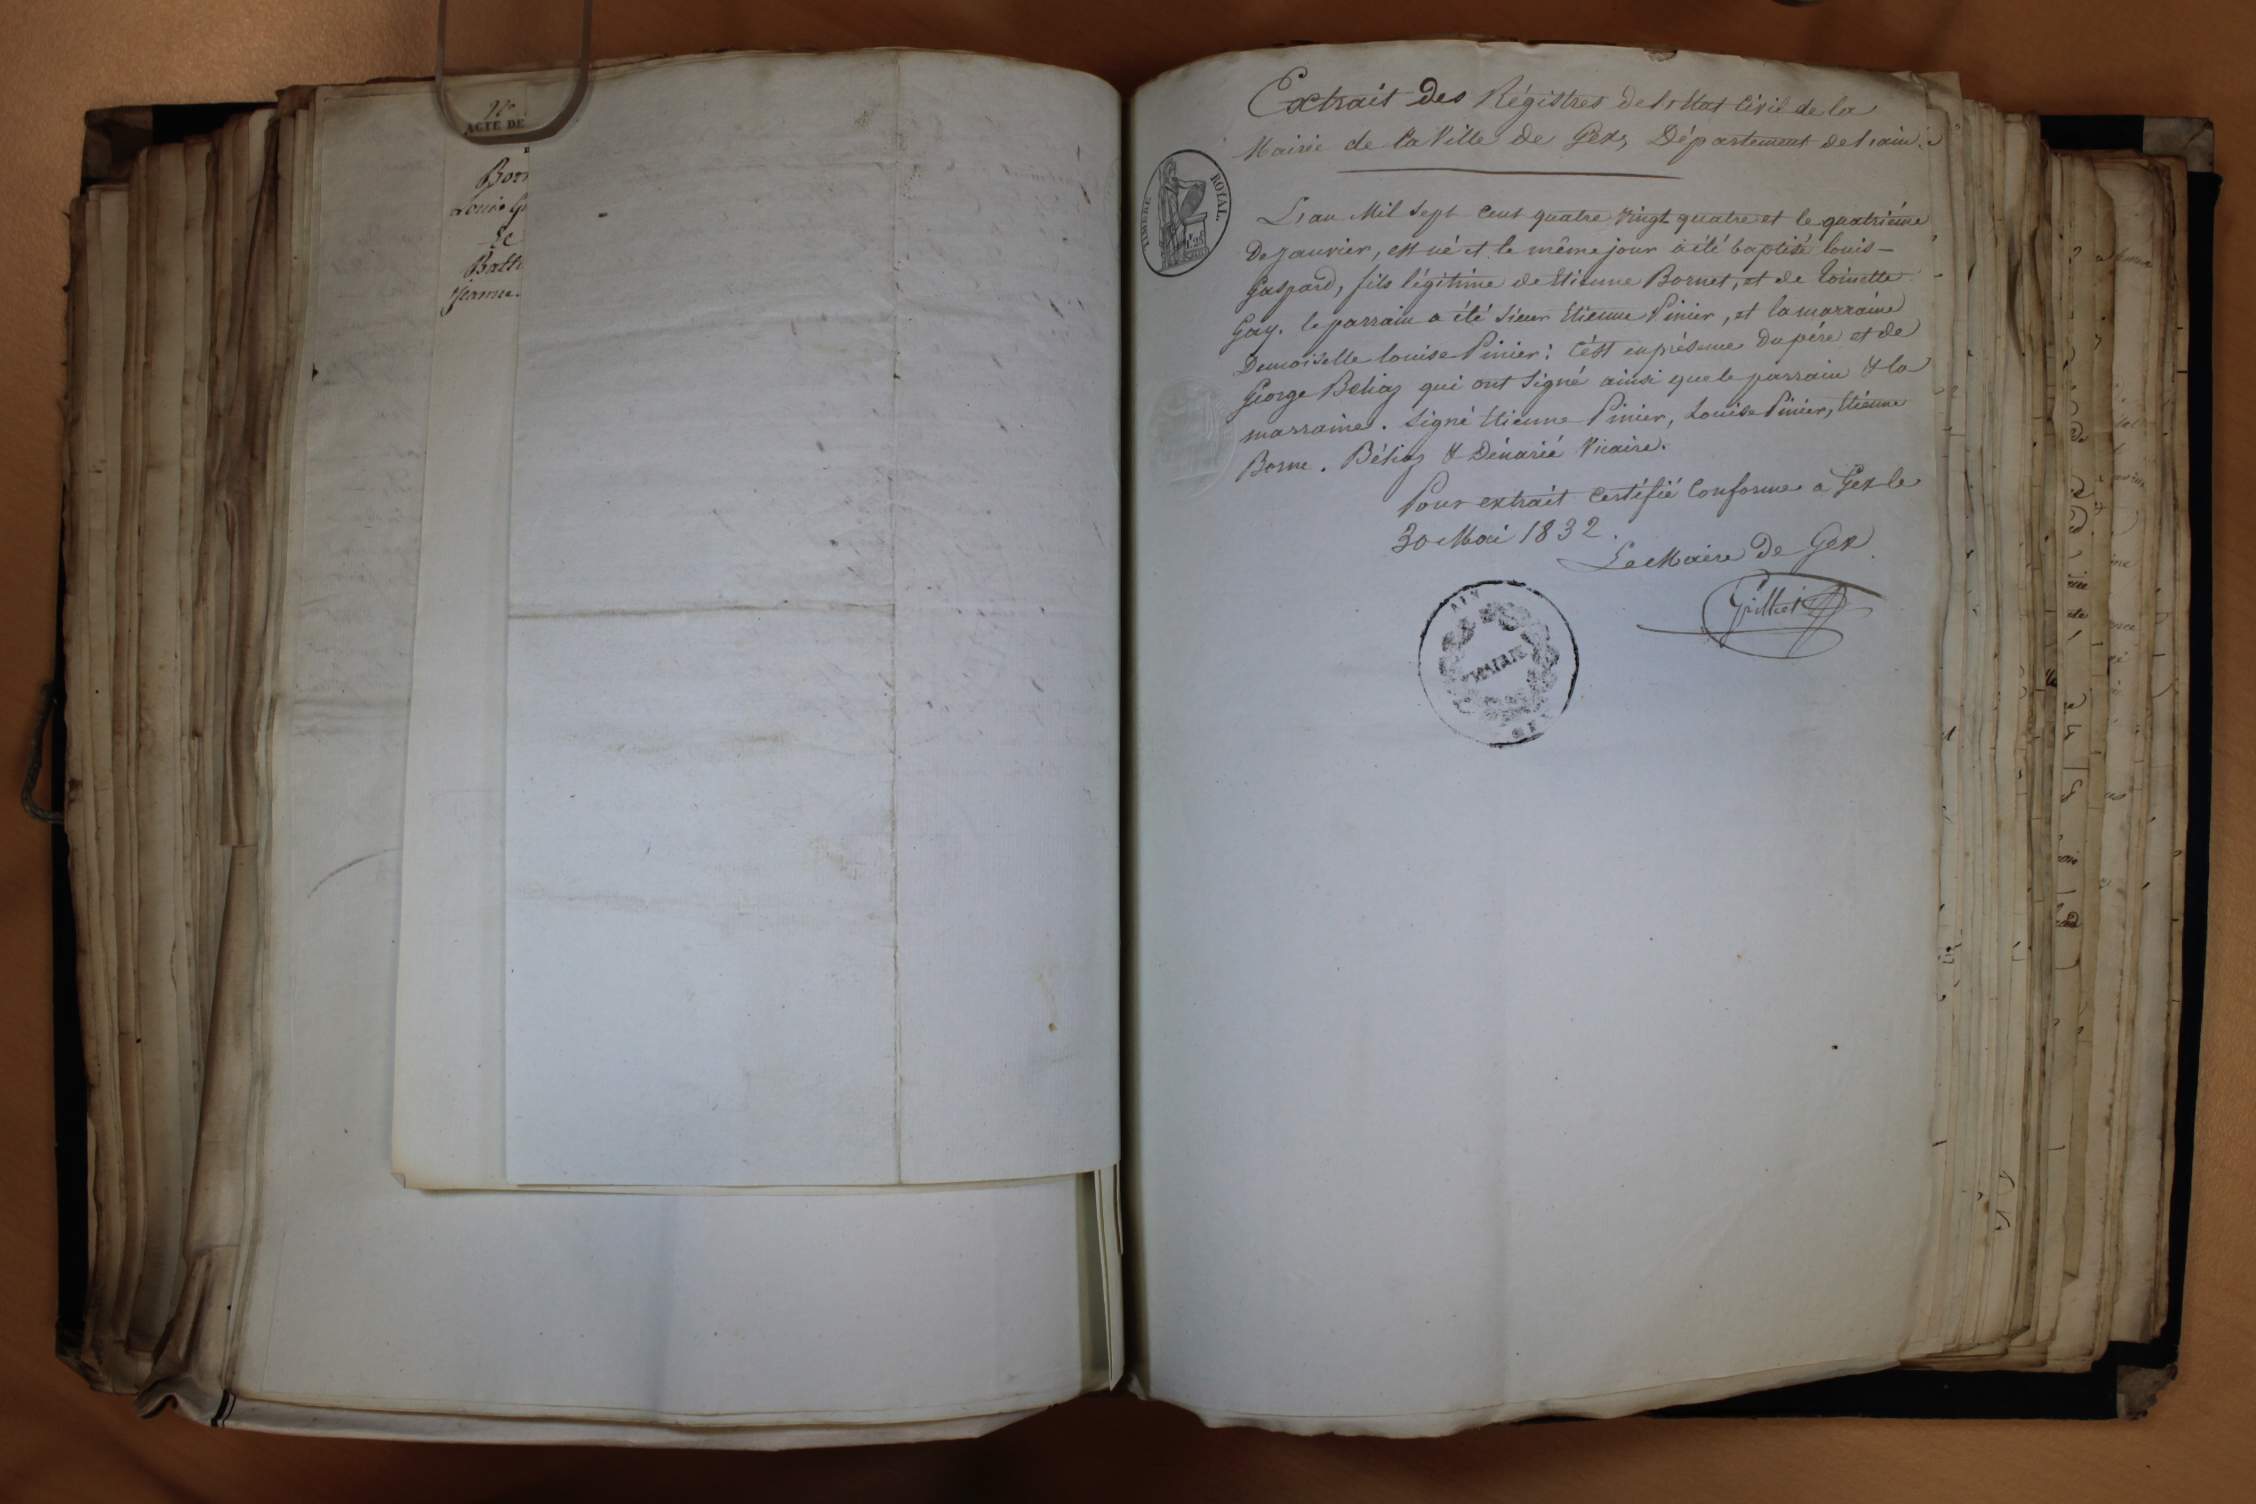 N°
ACTE DE
Born
Louis G
&
Jeanne.
Extrait des Régistres de l'état Civil de la
Mairie de la Ville de Gex, Département de l'ain.
TIMBRE ROYAL
L'an Mil Sept Cent quatre vingt quatre et le quatriéme
De janvier, est né et le même jour a été baptisé louis-
Gaspard, fils légitime de Etienne Bornet, et de Toinette
Gay. le parrain a été Sieur Etienne Pinier, et la marraine
Demoiselle louise Pinier: C'ést en présence du pére et de
George Béliaz qui ont Signé ainsi que le parrain & la
marraine. Signé Etienne Pinier, Louise Pinier, Etienne
Borne. Béliaz & Dénarié Vicaire.
Pour extrait Certifié Conforme a Gex le
30 Mai 1832.
Le Maire De Gex
MAIRIE